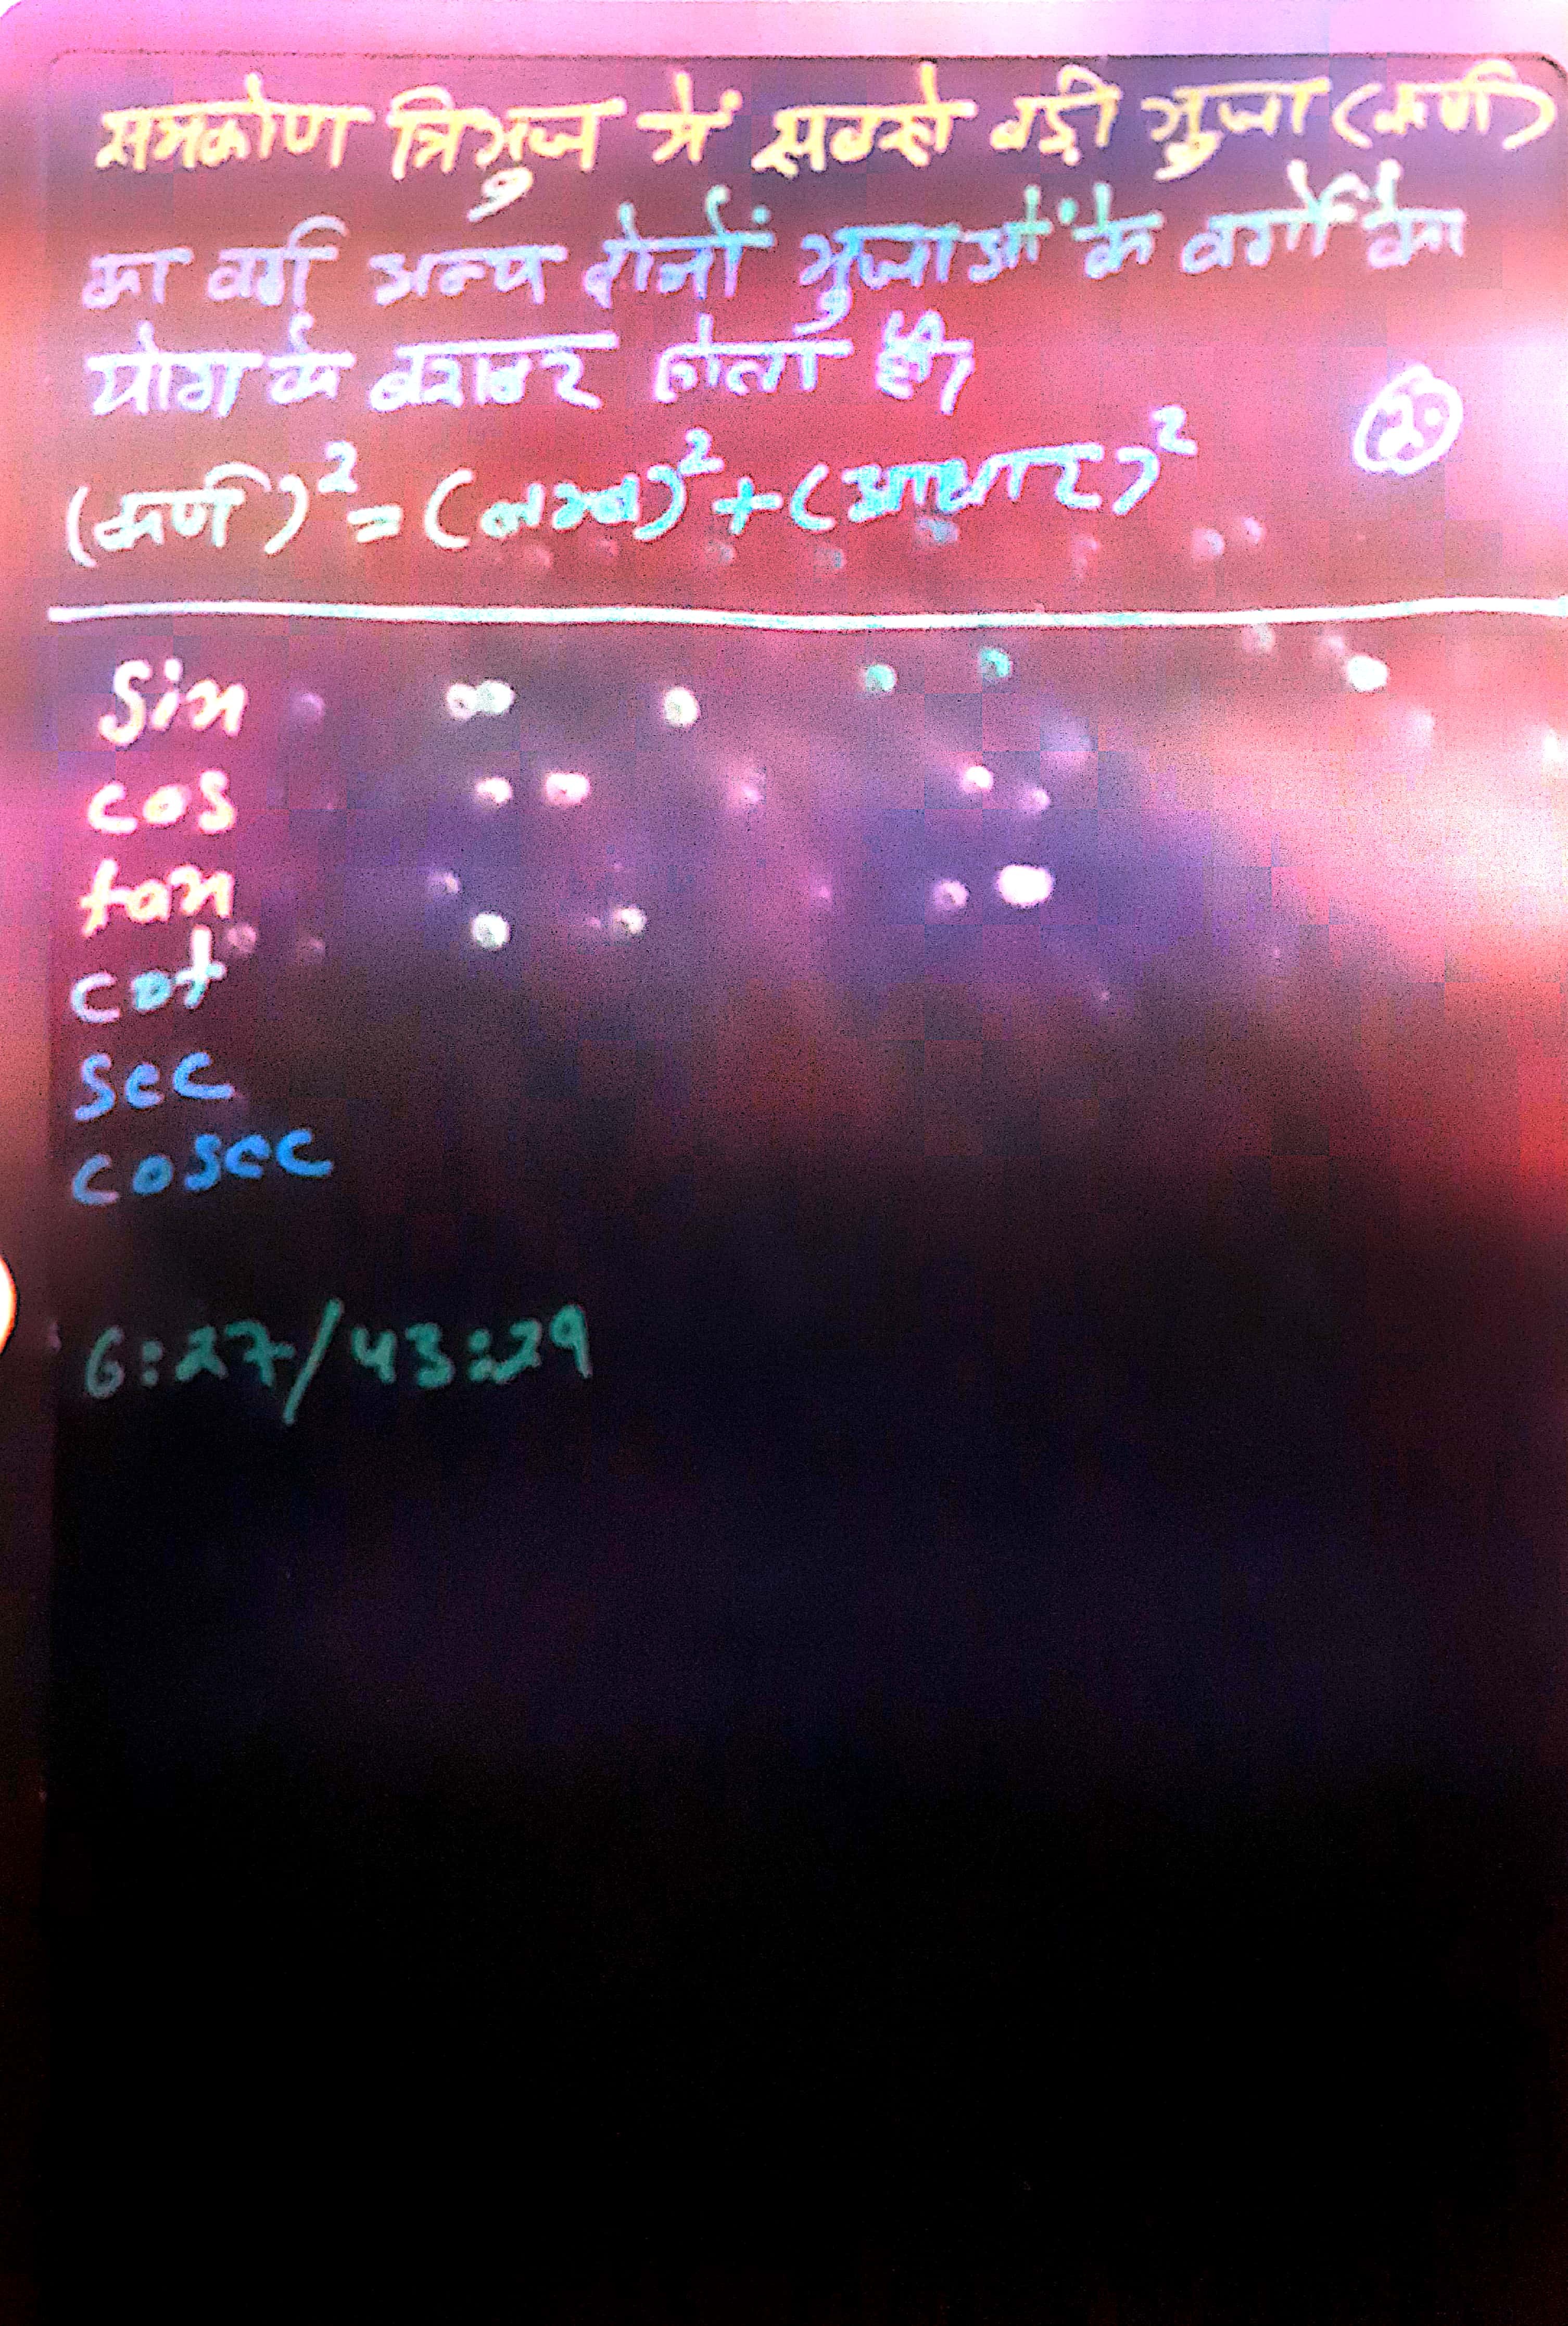 समकोण त्रिभुज में सबसे बड़ी भुजा (कर्ण)
का वर्ग अन्य दोनों भुजाओं के वर्गों के
योग के बराबर होता है।
(कर्ण)² = (लम्ब)² + (आधार)²
Sin
cos
tan
cot
sec
cosec
6:27/43:29